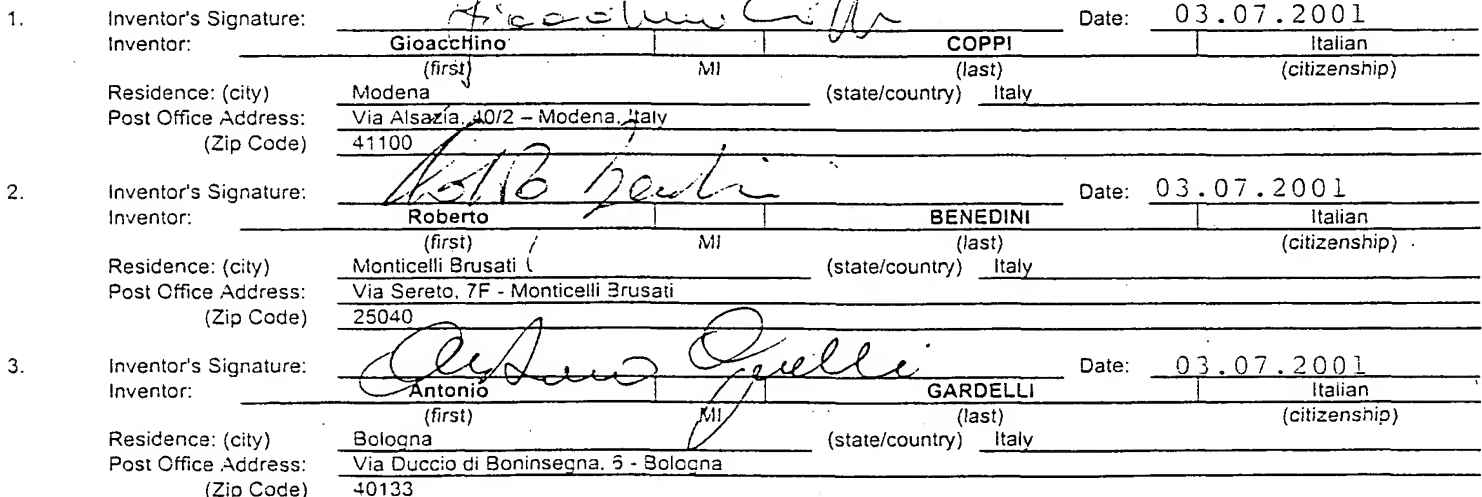 1. Inventor's Signature: Date: 03.07.2001
Inventor: Gioacchino COPPI Italian
(first) MI (last) (citizenship)
Residence: (city) Modena (state/country) Italy
Post Office Address: Via Alsazia, 40/2 – Modena, Italy
(Zip Code) 41100
2. Inventor's Signature: Date: 03.07.2001
Inventor: Roberto BENEDINI Italian
(first) MI (last) (citizenship)
Residence: (city) Monticelli Brusati (state/country) Italy
Post Office Address: Via Sereto, 7F - Monticelli Brusati
(Zip Code) 25040
3. Inventor's Signature: Date: 03.07.2001
Inventor: Antonio GARDELLI Italian
(first) MI (last) (citizenship)
Residence: (city) Bologna (state/country) Italy
Post Office Address: Via Duccio di Boninsegna, - Bologna
(Zip Code) 40133